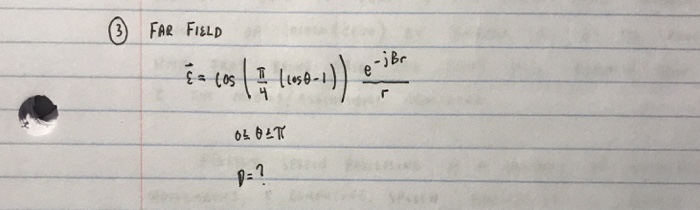 ③ FAR FIELD
ε⃗ = cos(π/4 (cosθ-1)) e^-jβr / r
0≤ θ ≤π
D=?